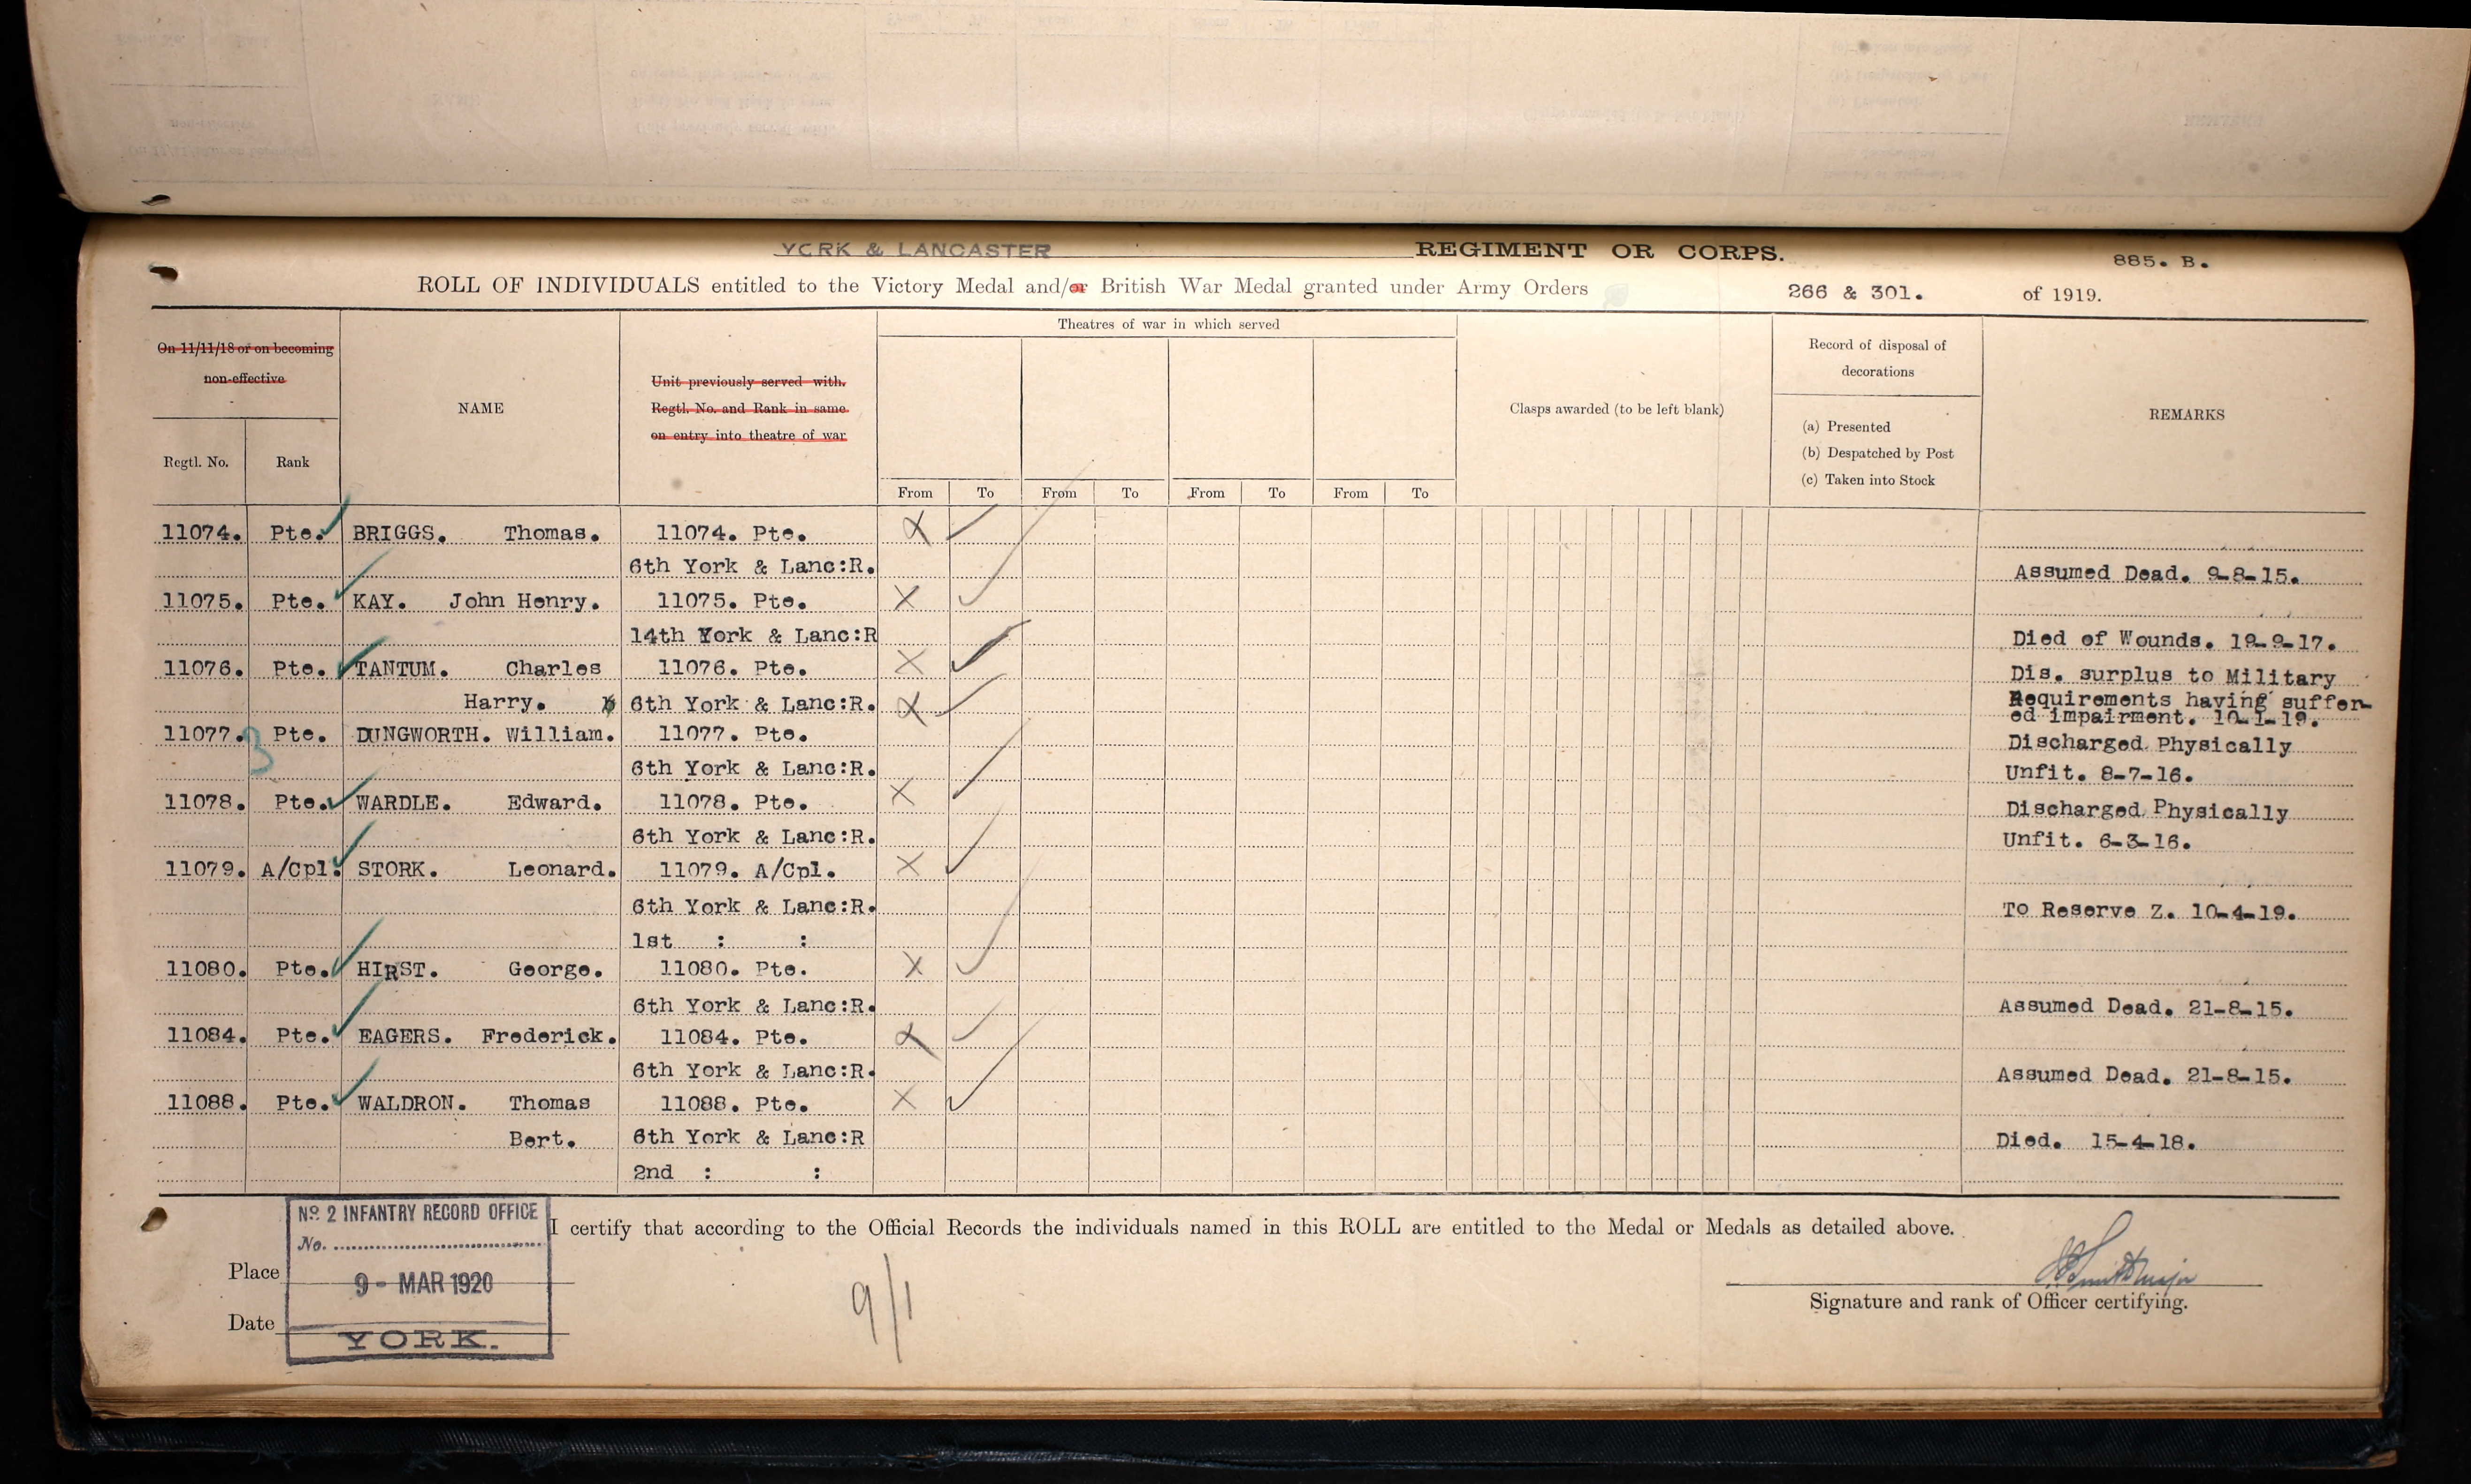 YORK & LANCASTER REGIMENT OR CORPS. 885. B.
ROLL OF INDIVIDUALS entitled to the Victory Medal and/or British War Medal granted under Army Orders 266 & 301. of 1919.
On 11/11/18 or on becoming non-effective
Regtl. No.
Rank
NAME
Unit previously served with.
Regtl. No. and Rank in same
on entry into theatre of war
Theatres of war in which served
From To From To From To From To
Clasps awarded (to be left blank)
Record of disposal of
decorations
(a) Presented
(b) Despatched by Post
(c) Taken into Stock
REMARKS
11074. Pte. BRIGGS. Thomas. 11074. Pte.
6th York & Lanc:R. Assumed Dead. 9-8-15.
11075. Pte. KAY. John Henry. 11075. Pte.
14th York & Lanc:R Died of Wounds. 19-9-17.
11076. Pte. TANTUM. Charles 11076. Pte. Dis. surplus to Military
Harry. 6th York & Lanc:R. Requirements having suffer-
ed impairment. 10-1-19.
11077. 3 Pte. DUNGWORTH. William. 11077. Pte. Discharged Physically
6th York & Lanc:R. Unfit. 8-7-16.
11078. Pte. WARDLE. Edward. 11078. Pte. Discharged Physically
6th York & Lanc:R. Unfit. 6-3-16.
11079. A/Cpl. STORK. Leonard. 11079. A/Cpl.
6th York & Lanc:R. To Reserve Z. 10-4-19.
1st : :
11080. Pte. HIRST. George. 11080. Pte.
6th York & Lanc:R. Assumed Dead. 21-8-15.
11084. Pte. EAGERS. Frederick. 11084. Pte.
6th York & Lanc:R. Assumed Dead. 21-8-15.
11088. Pte. WALDRON. Thomas 11088. Pte.
Bert. 6th York & Lanc:R Died. 15-4-18.
2nd : :
I certify that according to the Official Records the individuals named in this ROLL are entitled to the Medal or Medals as detailed above.
Nº 2 INFANTRY RECORD OFFICE
No.
Place 9 - MAR 1920
Date YORK.
9/1
Signature and rank of Officer certifying.